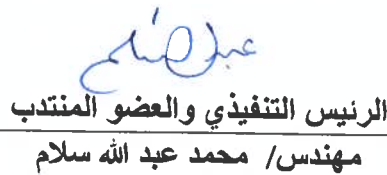 الرئيس التنفيذي والعضو المنتدب
مهندس/ محمد عبد الله سلام